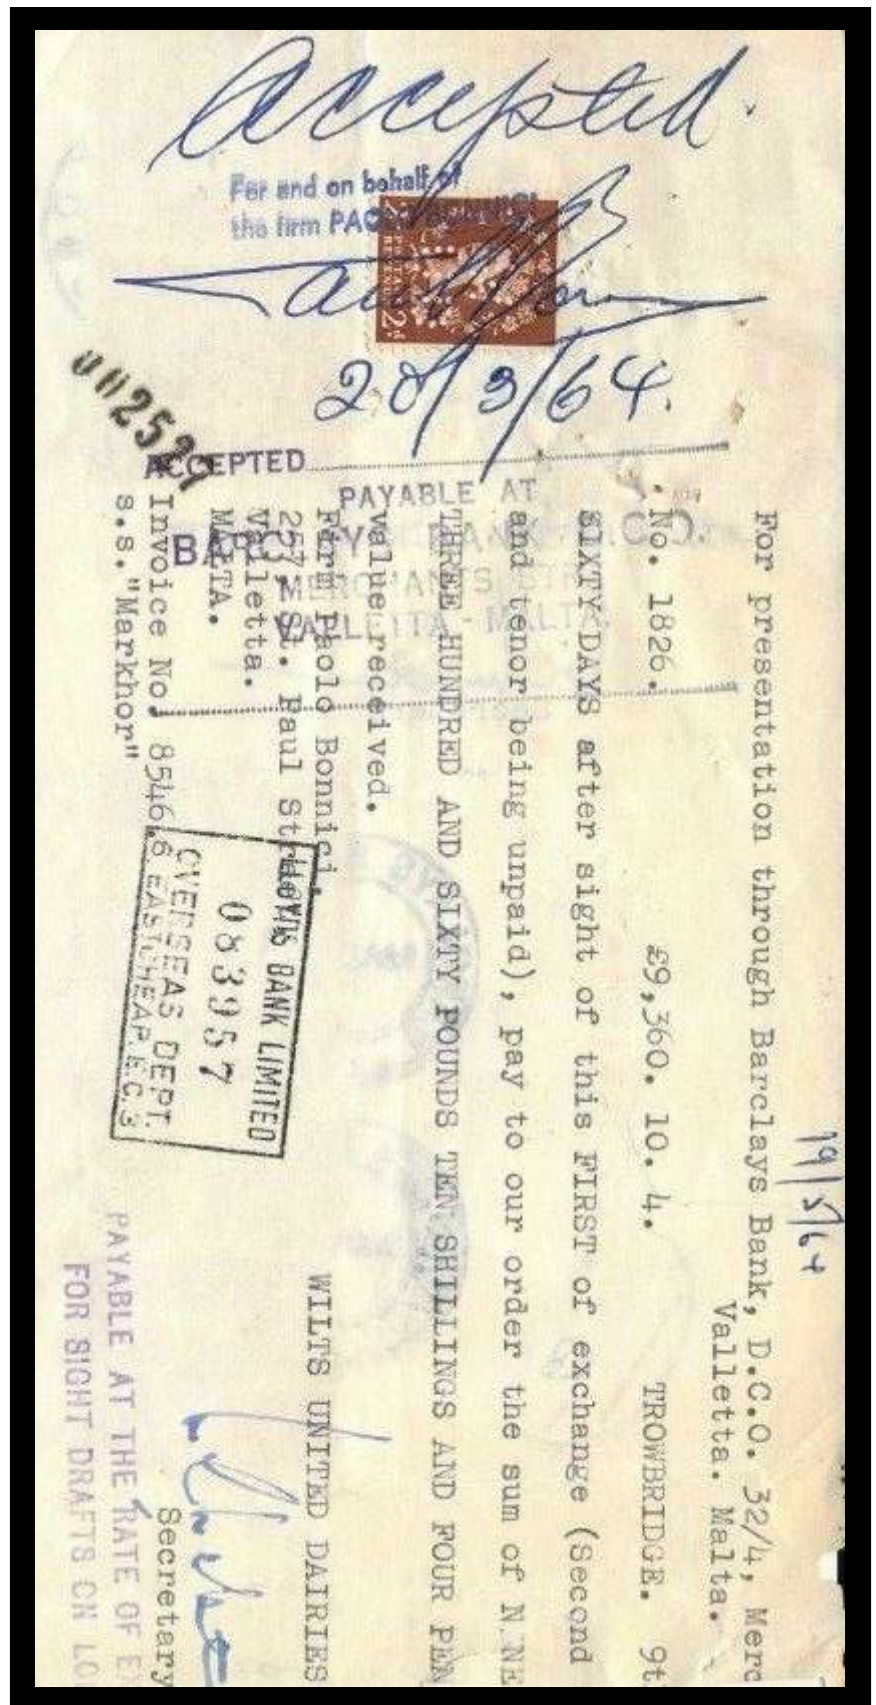 Accepted.
For and on behalf of
the firm
2d
20/3/64.
002527
ACCEPTED
PAYABLE AT
BARCLAYS BANK D.C.O.
MERCHANTS STR
VALLETTA - MALTA.
19/5/64
For presentation through Barclays Bank, D.C.O. 32/4, Merc
Valletta. Malta.
No. 1826. £9,360. 10. 4. TROWBRIDGE. 9t
SIXTY DAYS after sight of this FIRST of exchange (Second
and tenor being unpaid), pay to our order the sum of N NE
THREE HUNDRED AND SIXTY POUNDS TEN SHILLINGS AND FOUR PEN
value received.
Firm Paolo Bonnici,
257, St. Paul Street,
Valletta.
MALTA.
Invoice No. 8546.
s.s."Markhor"
LLOYDS BANK LIMITED
083957
OVERSEAS DEPT.
6 EASTCHEAP E.C.3
WILTS UNITED DAIRIES
Secretary
PAYABLE AT THE RATE OF EX
FOR SIGHT DRAFTS ON LO